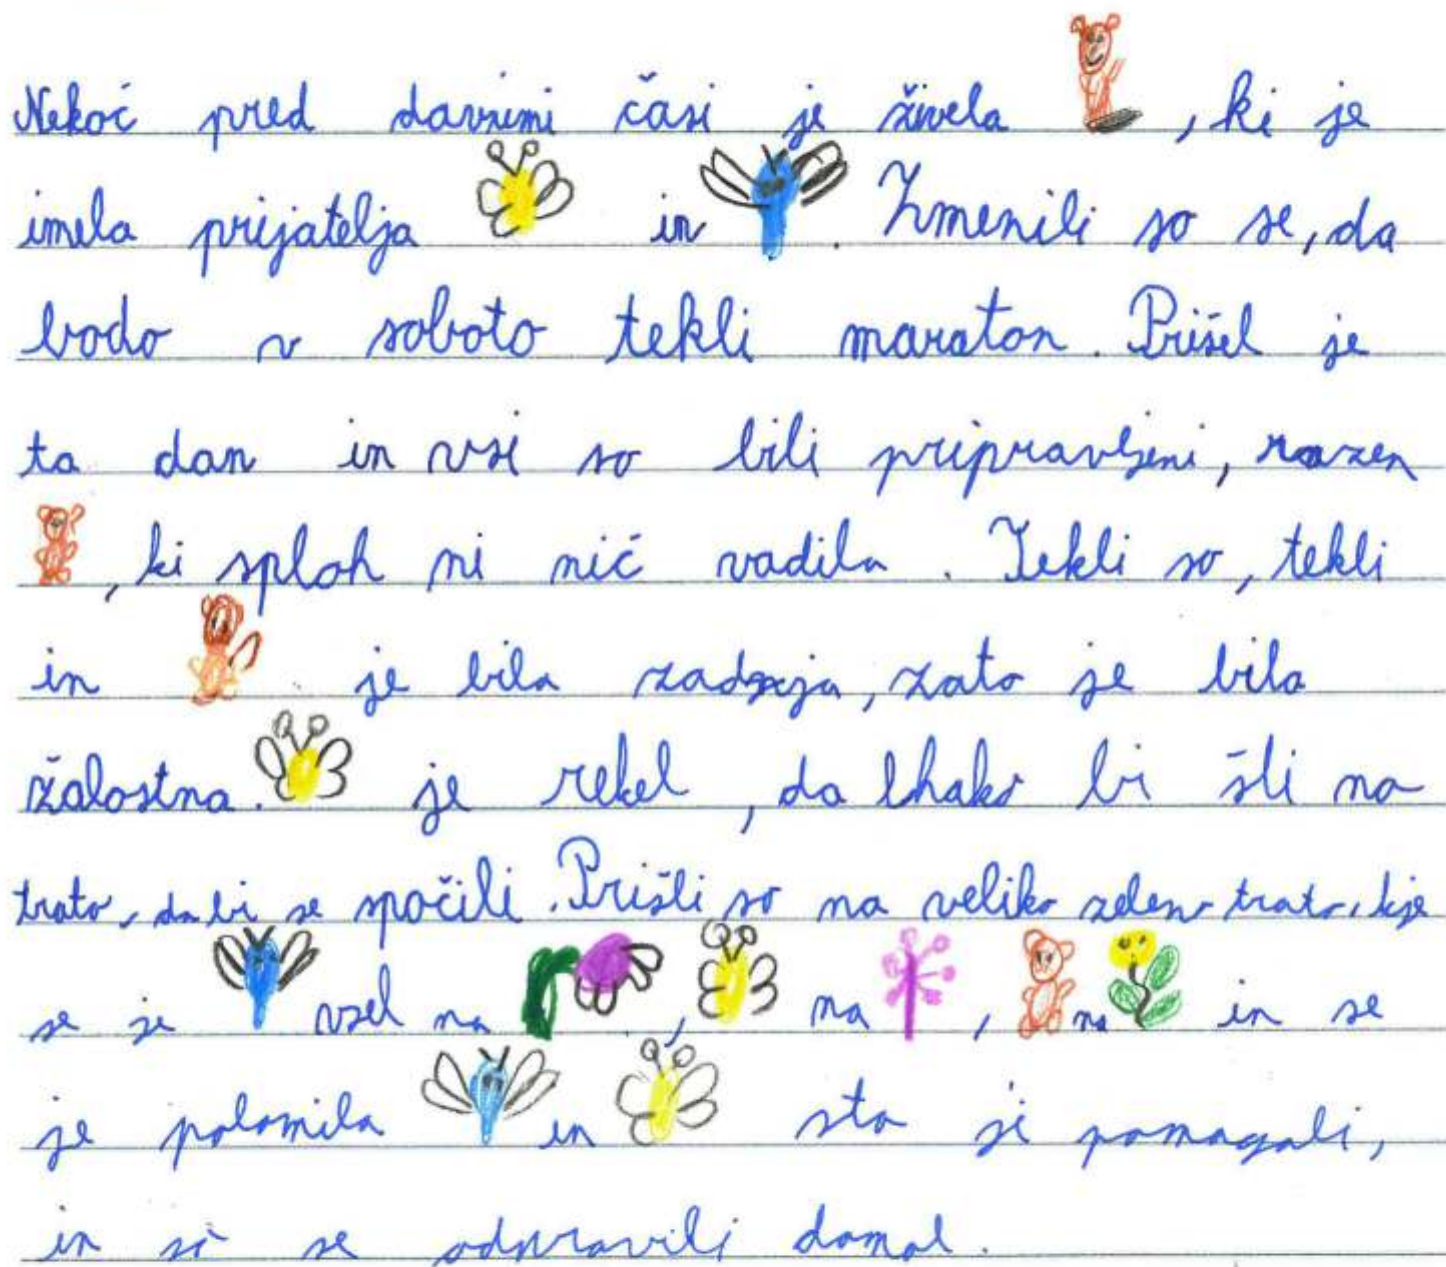 Nekoč pred davnimi časi je živela , ki je
imela prijatelja in . Zmenili so se, da
bodo v soboto tekli maraton. Prišel je
ta dan in vsi so bili pripravljeni, razen
, ki sploh ni nič vadila. Tekli so, tekli
in je bila zadnja, zato je bila
žalostna. je rekel, da lhako bi šli na
trato, da bi se spočili. Prišli so na veliko zeleno trato, kje
se je vsel na , na , na in se
je polomila in sta ji pomagali,
in so se odpravili domol.